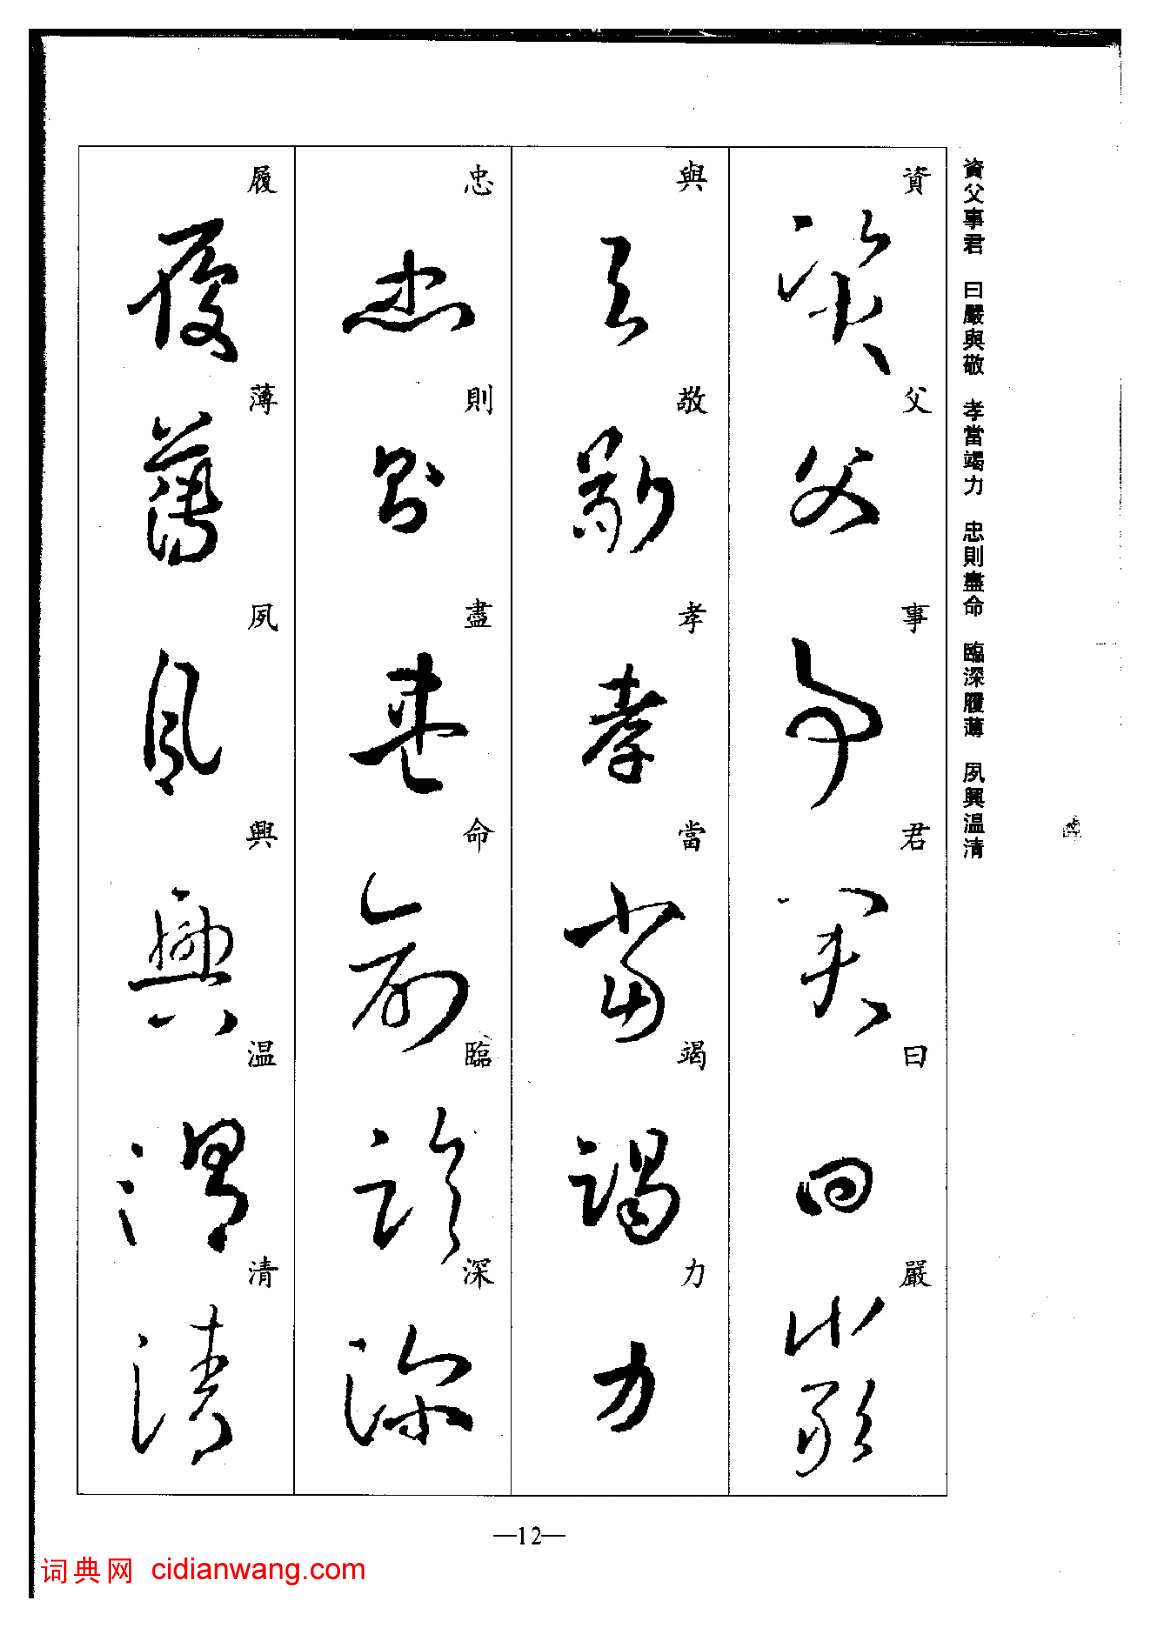 資父事君 曰嚴與敬 孝當竭力 忠則盡命 臨深履薄 夙興温清
資父事君曰嚴
與敬孝當竭力
忠則盡命臨深
履薄夙興温清
—12—
词典网 cidianwang.com